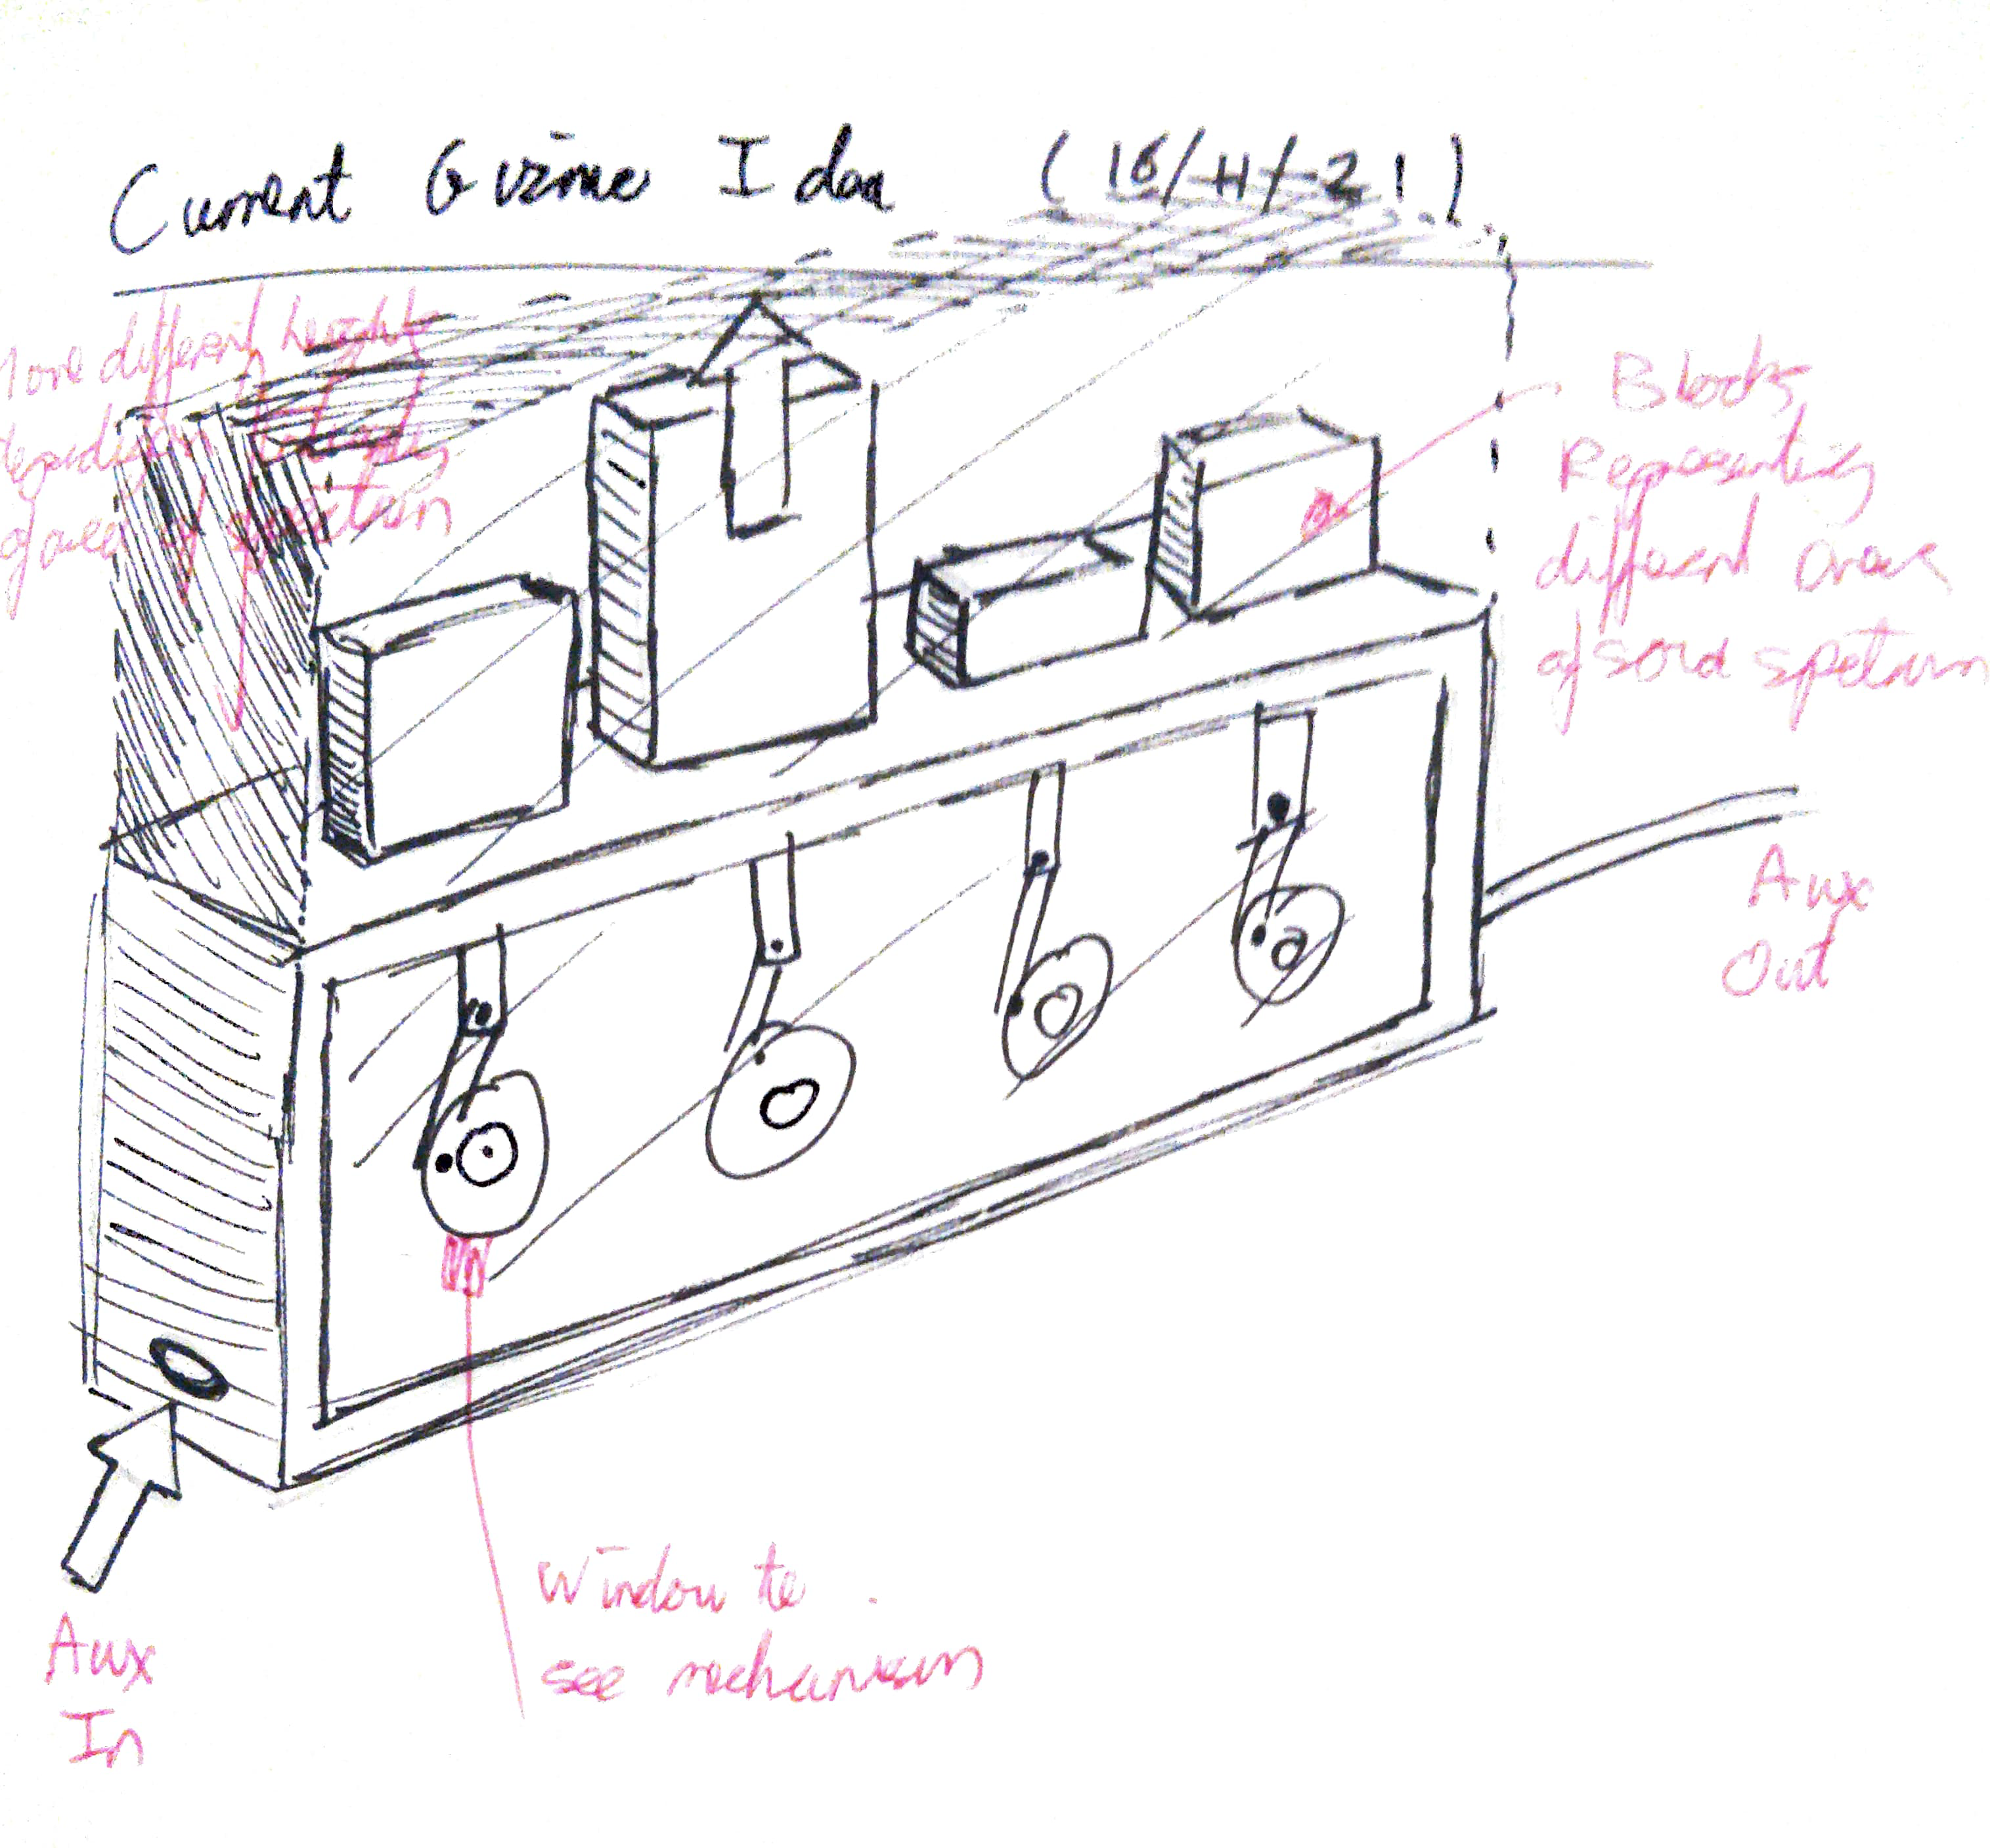 Current Gizmo Idea (16/11/21)
different height
depending
of area of
Blocks
Representing
different Areas
of sond spetrum
Aux
Out
Window to
see mechanism
Aux
In